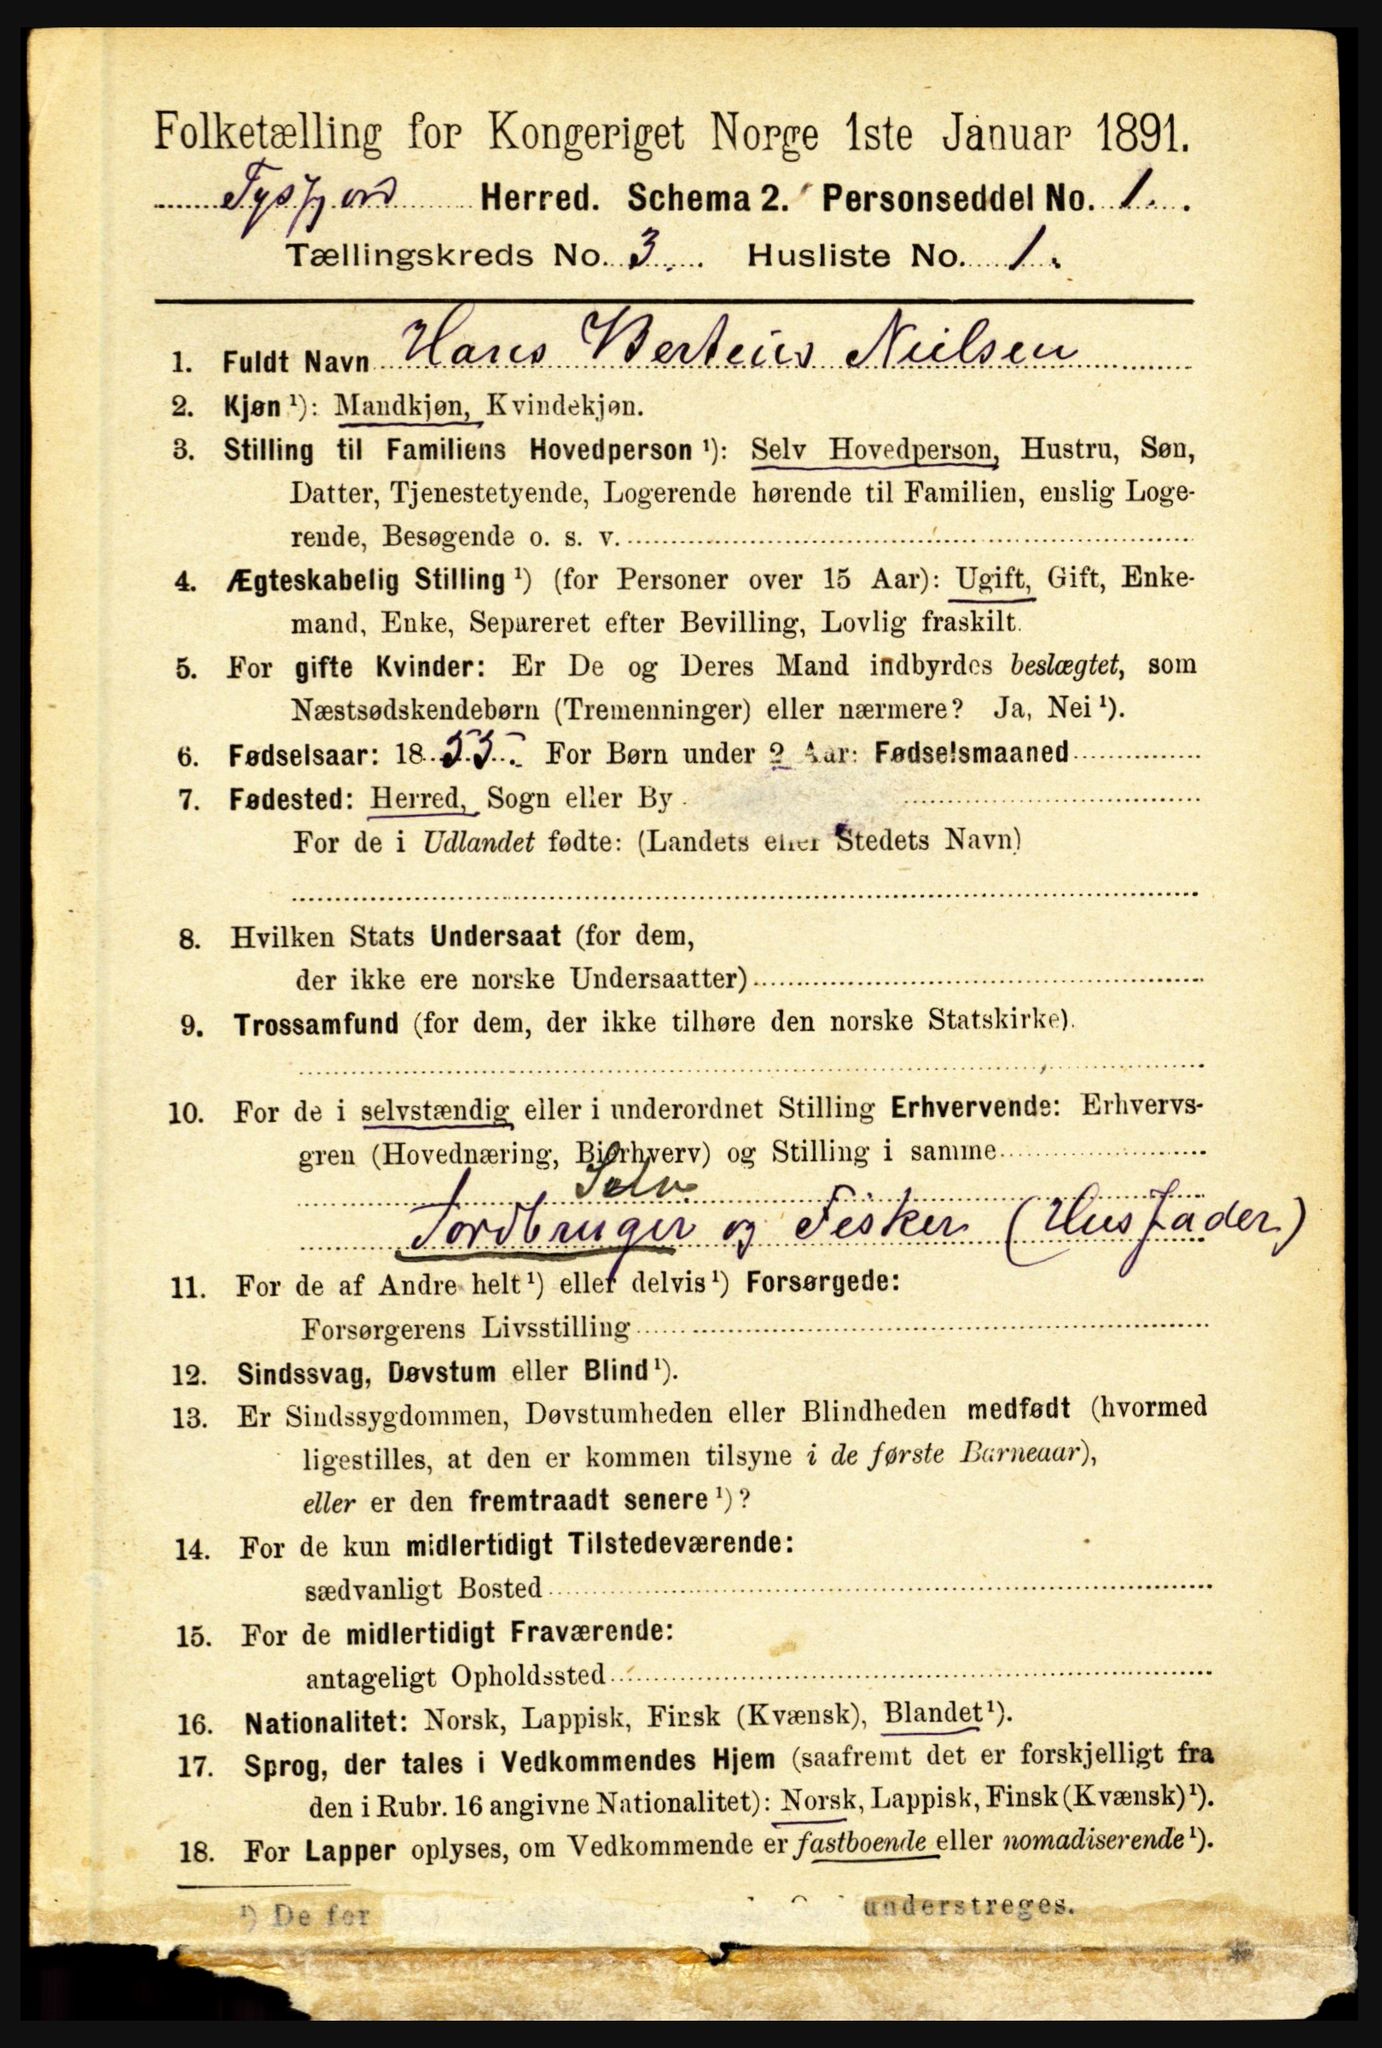 Folketælling for Kongeriget Norge 1ste Januar 1891.
Tysfjord Herred. Schema 2. Personseddel No. 1.
Tællingskreds No. 3. Husliste No. 1.
1. Fuldt Navn Hans Berteus Nielsen
2. Kjøn ¹): Mandkjøn, Kvindekjøn.
3. Stilling til Familiens Hovedperson ¹): Selv Hovedperson, Hustru, Søn,
Datter, Tjenestetyende, Logerende hørende til Familien, enslig Loge-
rende, Besøgende o. s. v.
4. Ægteskabelig Stilling ¹) (for Personer over 15 Aar): Ugift, Gift, Enke-
mand, Enke, Separeret efter Bevilling, Lovlig fraskilt.
5. For gifte Kvinder: Er De og Deres Mand indbyrdes beslægtet, som
Næstsødskendebørn (Tremenninger) eller nærmere? Ja, Nei ¹).
6. Fødselsaar: 1855. For Børn under 2 Aar: Fødselsmaaned
7. Fødested: Herred, Sogn eller By
For de i Udlandet fødte: (Landets eller Stedets Navn)
8. Hvilken Stats Undersaat (for dem,
der ikke ere norske Undersaatter)
9. Trossamfund (for dem, der ikke tilhøre den norske Statskirke).
10. For de i selvstændig eller i underordnet Stilling Erhvervende: Erhvervs-
gren (Hovednæring, Bierhverv) og Stilling i samme
Selv
Jordbruger og Fisker (Husfader)
11. For de af Andre helt ¹) eller delvis ¹) Forsørgede:
Forsørgerens Livsstilling
12. Sindssvag, Døvstum eller Blind ¹).
13. Er Sindssygdommen, Døvstumheden eller Blindheden medfødt (hvormed
ligestilles, at den er kommen tilsyne i de første Barneaar),
eller er den fremtraadt senere ¹)?
14. For de kun midlertidigt Tilstedeværende:
sædvanligt Bosted
15. For de midlertidigt Fraværende:
antageligt Opholdssted
16. Nationalitet: Norsk, Lappisk, Finsk (Kvænsk), Blandet ¹).
17. Sprog, der tales i Vedkommendes Hjem (saafremt det er forskjelligt fra
den i Rubr. 16 angivne Nationalitet): Norsk, Lappisk, Finsk (Kvænsk) ¹).
18. For Lapper oplyses, om Vedkommende er fastboende eller nomadiserende ¹).
¹) De for understreges.